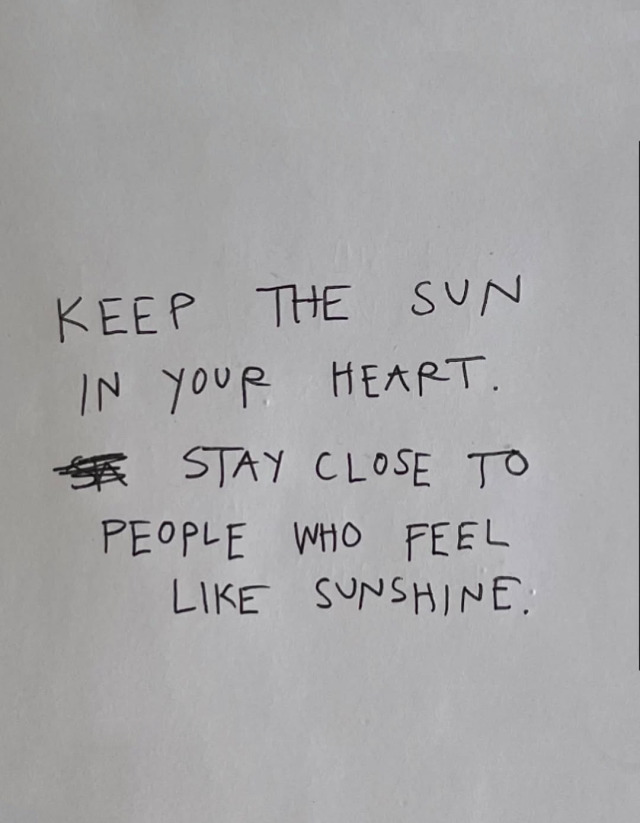 KEEP THE SUN
IN YOUR HEART.
STAY CLOSE TO
PEOPLE WHO FEEL
LIKE SUNSHINE.